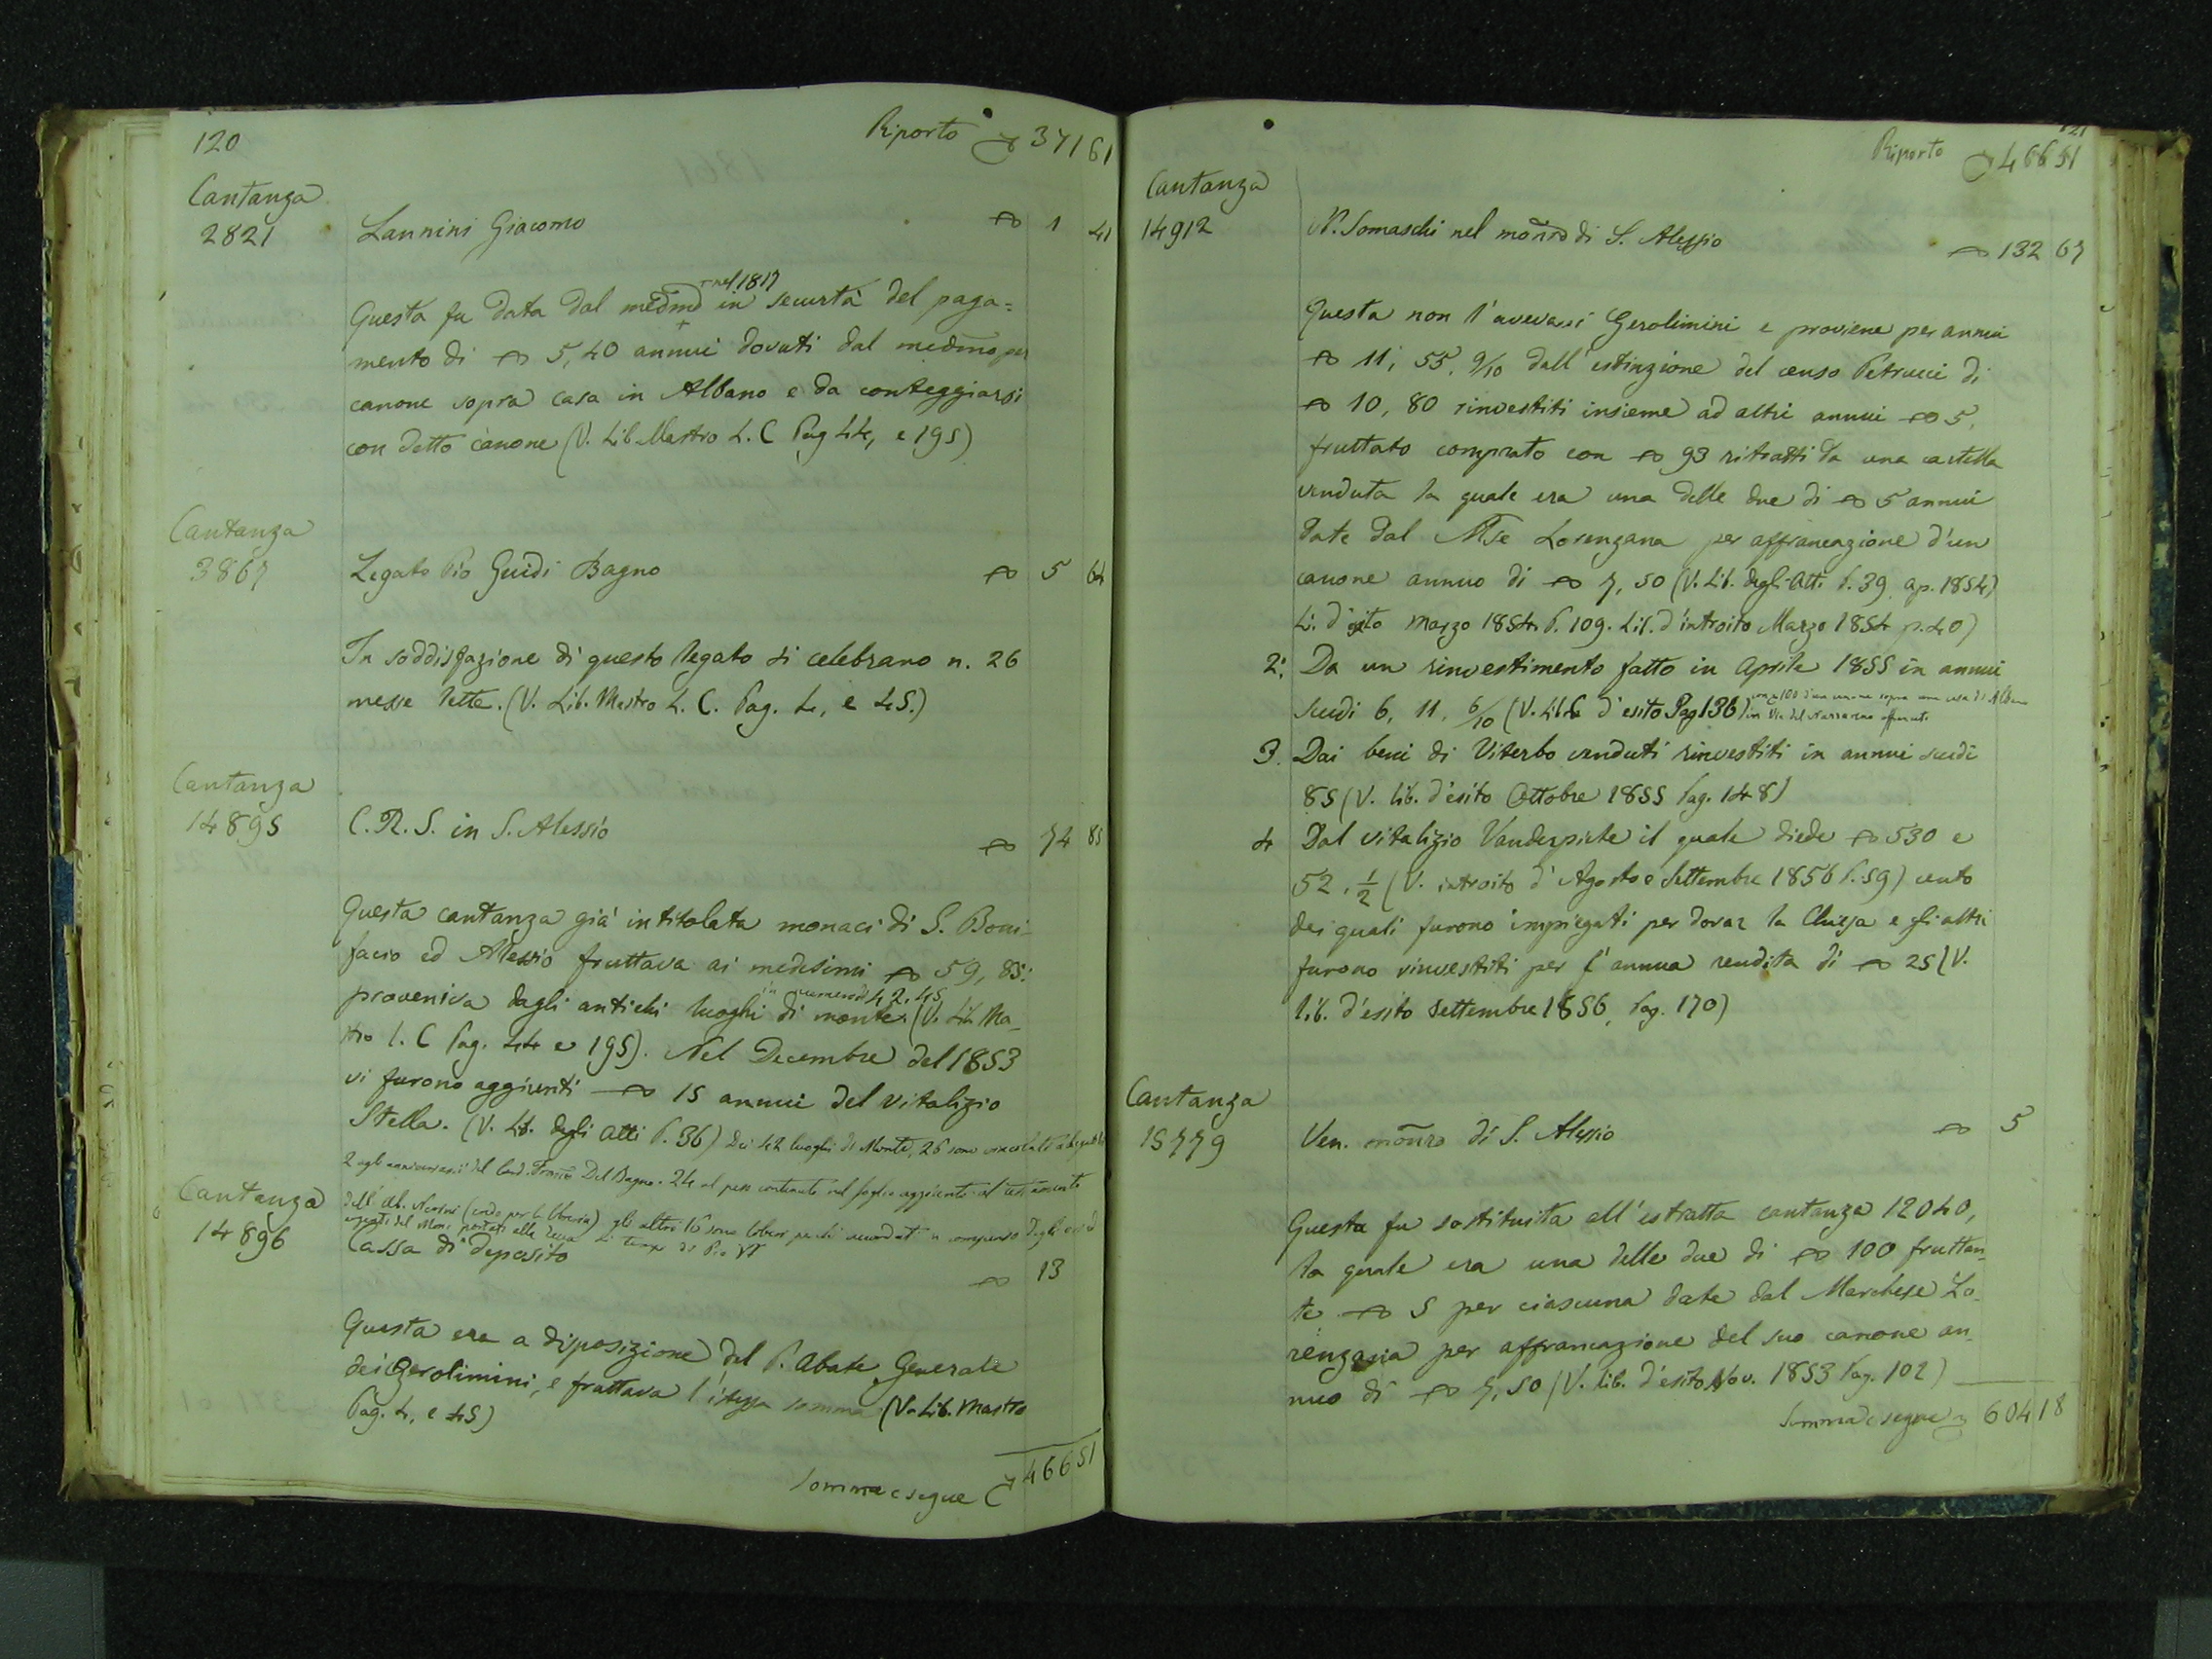 120
Riporto 371 61
Cantanza
2821
Lannini Giacomo 1 41
nel 1817
Questa fu data dal medmo in securtà del paga=
mento di 5,40 annui dovuti dal medmo per
canone sopra casa in Albano e da conteggiarsi
con detto canone (V. Lib Mastro L. C Pag 44, e 195)
Cantanza
3867
Legato Pio Guidi Bagno 5 64
In soddisfazione di questo legato si celebrano n. 26
messe lette. (V. Lib. Mastro L. C. Pag. 4, e 45.)
Cantanza
14895
C. R. S. in S. Alessio 74 85
Questa cantanza già intitolata monaci di S. Boni-
facio ed Alessio fruttava ai medesimi 59, 85:
in numero di 42.45
proveniva dagli antichi luoghi di monte. (V. Lib. Ma-
stro l. C Pag. 44 e 195). Nel Decembre del 1853
vi furono aggiunti 15 annui del vitalizio
Stella. (V. Lib. degli Atti P. 36) Dei 42 luoghi di Monte, 26 sono vincolati
2 agli anniversarii del Card. Del Bagno. 24 al peso contenuto nel foglio aggiunto al testamento
dell' Ab. Nerini gli altri 16 sono liberi perchè accordati a compenso degli
portati alla Zecca ai tempi di Pio VI
Cantanza
14896
Cassa di deposito 13
Questa era a disposizione del P. Abate Generale
dei Gerolimini, e fruttava l'istessa somma (V. Lib. Mastro
Pag. 4, e 45)
Somma e segue 466 51
121
Riporto 466 51
Cantanza
14912
PP. Somaschi nel monro di S. Alessio 132 67
Questa non l'avevassi Gerolimini e proviene per annui
11, 55, 9/10 dall' estinzione del censo Petrucci di
10, 80 rinvestiti insieme ad altri annui 5,
fruttato comprato con 93 ritratti da una cartella
venduta la quale era una delle due di 5 annui
date dal Mse Lorenzana per affrancazione d'un
canone annuo di 7, 50 (V. Lib. degli Atti P. 39 ap. 1854)
Li. d'esito Marzo 1854 P. 109. Lib. d'introito Marzo 1854 p. 40)
2: Da un rinvestimento fatto in Aprile 1855 in annui
scudi 6, 11, 6/10 (V. Lib. d'esito Pag 136) con 100 d'un canone sopra una casa di Albano
in Via del Nazzareno
3. Dai beni di Viterbo venduti rinvestiti in annui scudi
85 (V. lib. d'esito Ottobre 1855 Pag. 148)
4 Dal vitalizio il quale diede 530 e
52, 1/2 (V. introito d'Agosto e Settembre 1856 P. 59) cento
dei quali furono impiegati per dorar la Chiesa e gli altri
furono rinvestiti per l'annua rendita di 25 (V.
lib. d'esito Settembre 1856, Pag. 170)
Cantanza
15779
Ven. monro di S. Alessio 5
Questa fu sostituita all' estratta cantanza 12040,
la quale era una delle due di 100 fruttan-
te 5 per ciascuna date dal Marchese Lo-
renzana per affrancazione del suo canone an-
nuo di 7, 50 (V. Lib. d'esito Nov. 1853 Pag. 102)
Somma e segue 604 18